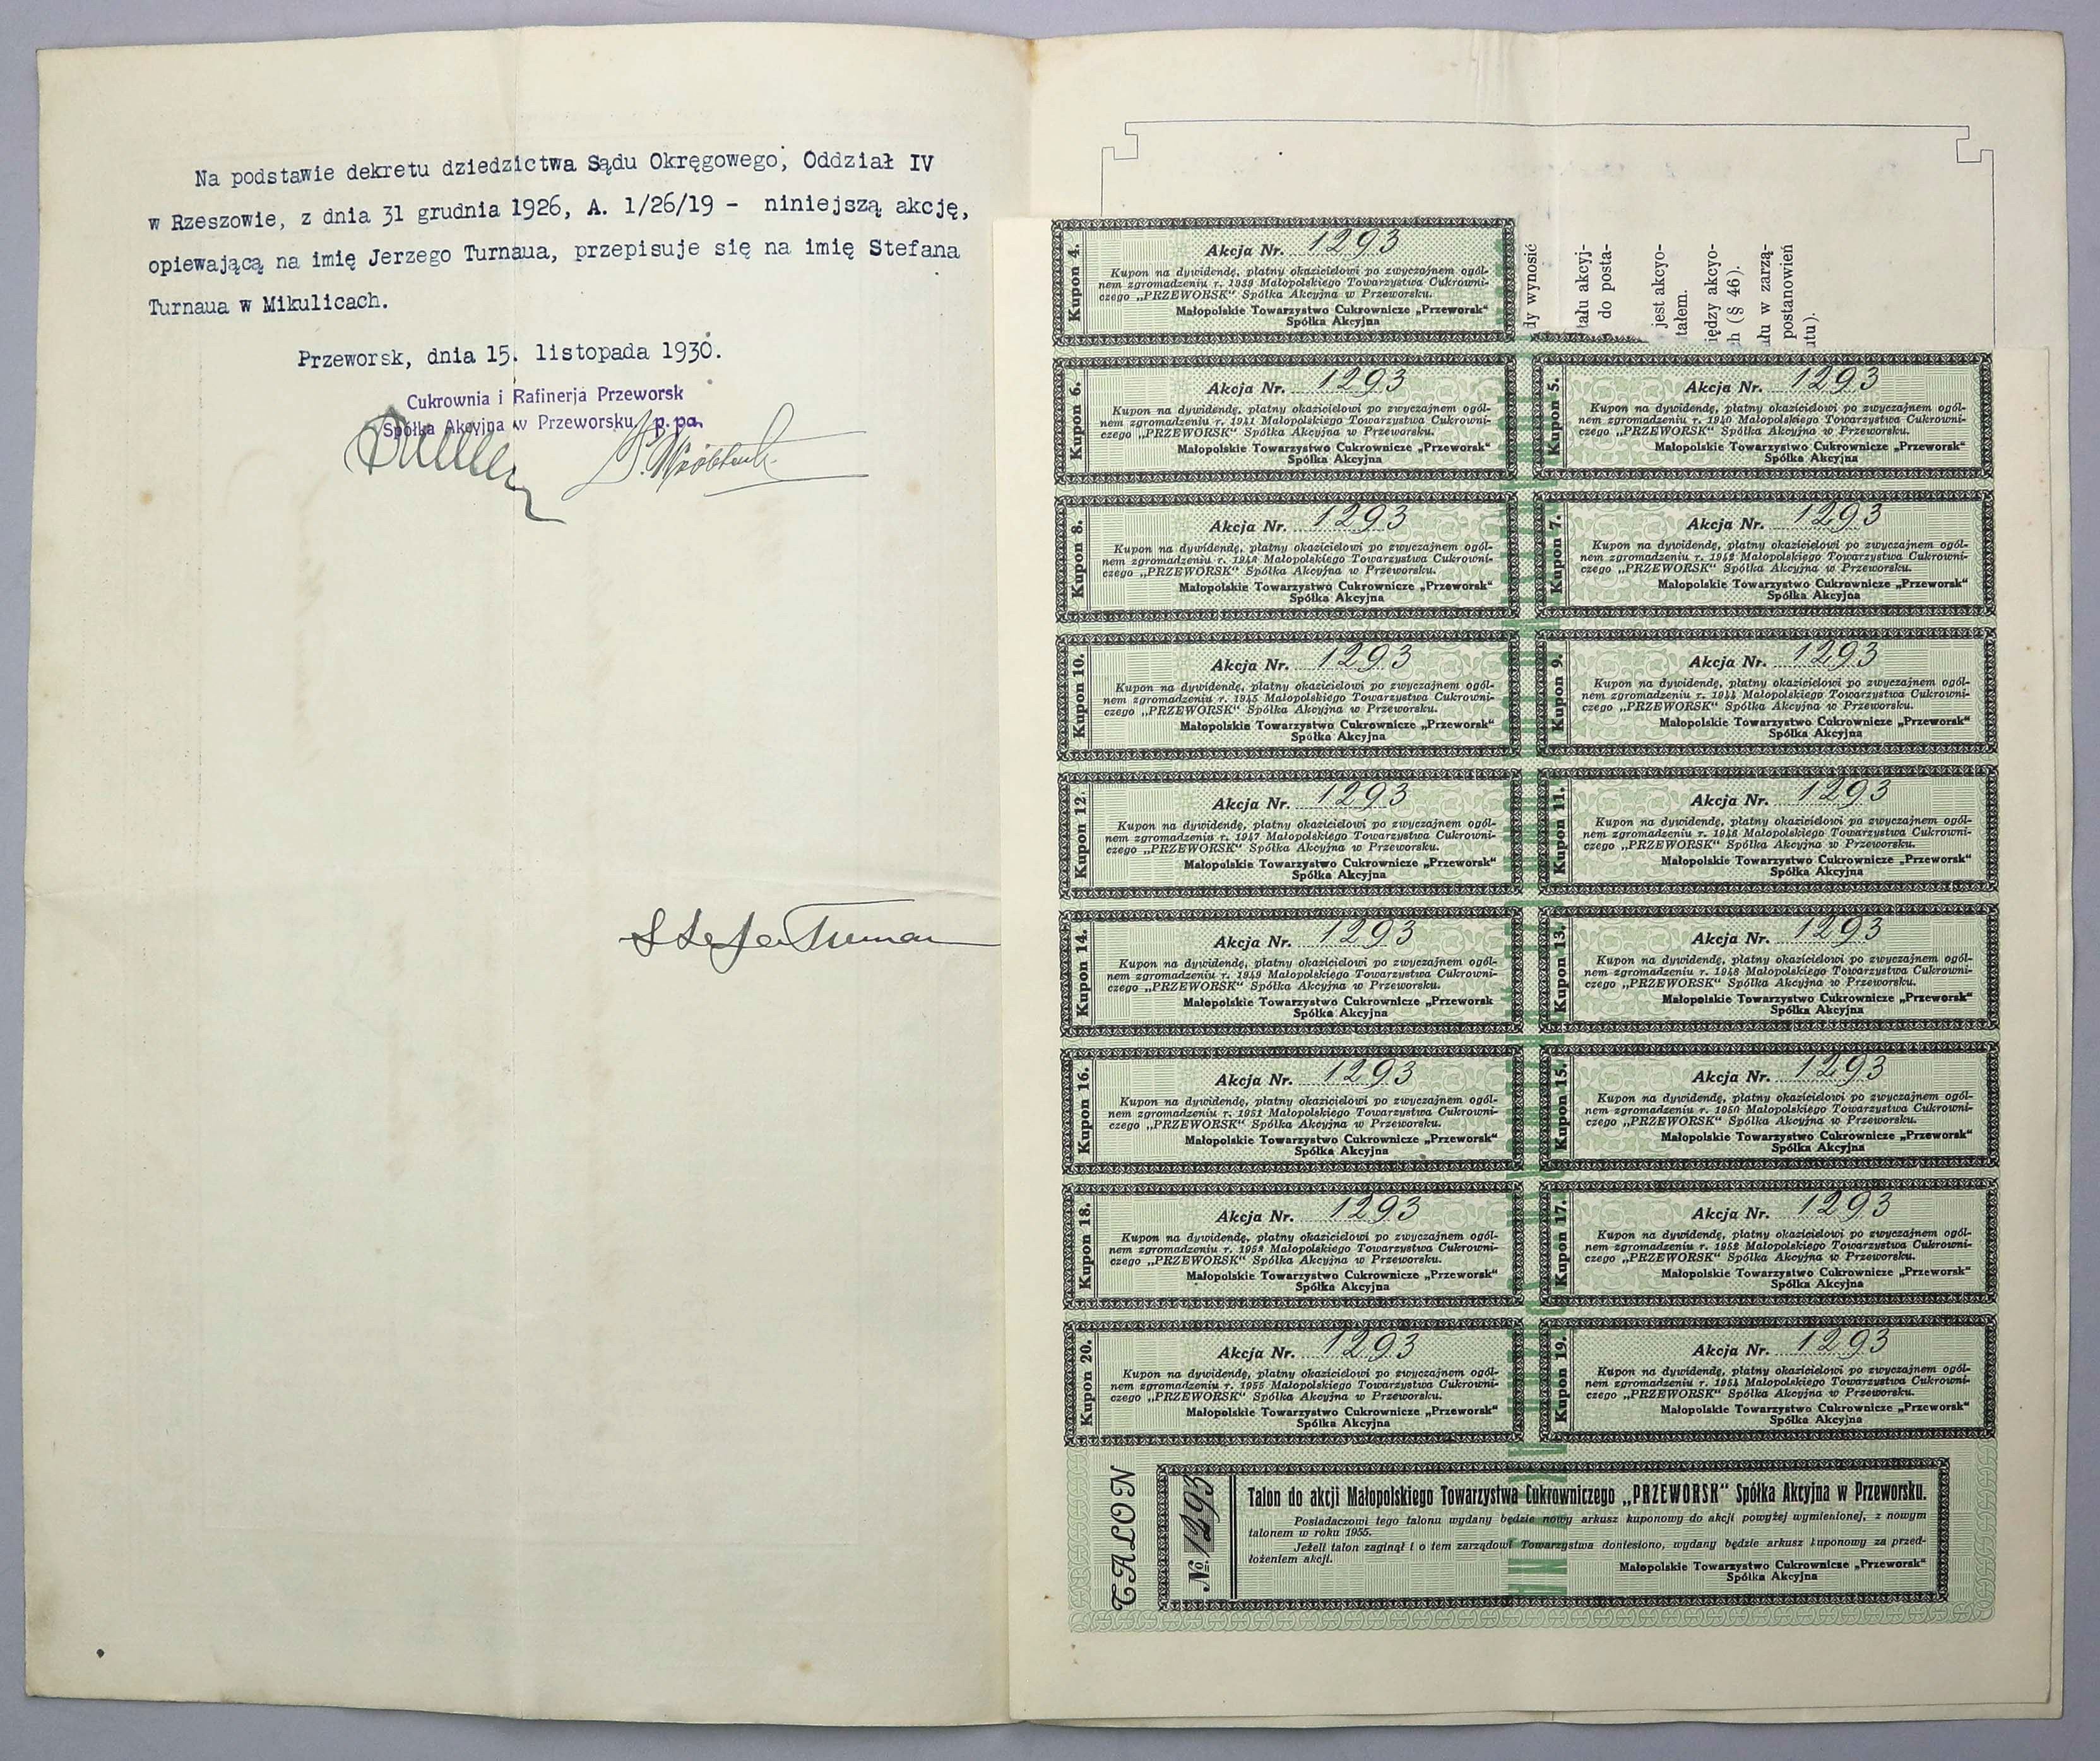 Na podstawie dekretu dziedzictwa Sądu Okręgowego, Oddział IV
w Rzeszowie, z dnia 31 grudnia 1926, A. 1/26/19 - niniejszą akcję,
opiewającą na imię Jerzego Turnaua, przepisuje się na imię Stefana
Turnaua w Mikulicach.
Przeworsk, dnia 15. listopada 1930.
Cukrownia i Rafinerja Przeworsk
Spółka Akcyjna w Przeworsku p. pa.
dy wynosić
tału akcyj-
do posta-
jest akcyo-
tałem.
iędzy akcyo-
h (§ 46).
łu w zarzą-
postanowień
utu).
Kupon 4.
Akcja Nr. 1293
Kupon na dywidendę, płatny okazicielowi po zwyczajnem ogól-
nem zgromadzeniu r. 1939 Małopolskiego Towarzystwa Cukrowni-
czego „PRZEWORSK“ Spółka Akcyjna w Przeworsku.
Małopolskie Towarzystwo Cukrownicze „Przeworsk“
Spółka Akcyjna
Kupon 6.
Akcja Nr. 1293
Kupon na dywidendę, płatny okazicielowi po zwyczajnem ogól-
nem zgromadzeniu r. 1941 Małopolskiego Towarzystwa Cukrowni-
czego „PRZEWORSK“ Spółka Akcyjna w Przeworsku.
Małopolskie Towarzystwo Cukrownicze „Przeworsk“
Spółka Akcyjna
Kupon 5.
Akcja Nr. 1293
Kupon na dywidendę, płatny okazicielowi po zwyczajnem ogól-
nem zgromadzeniu r. 1940 Małopolskiego Towarzystwa Cukrowni-
czego „PRZEWORSK“ Spółka Akcyjna w Przeworsku.
Małopolskie Towarzystwo Cukrownicze „Przeworsk“
Spółka Akcyjna
Kupon 8.
Akcja Nr. 1293
Kupon na dywidendę, płatny okazicielowi po zwyczajnem ogól-
nem zgromadzeniu r. Małopolskiego Towarzystwa Cukrowni-
czego „PRZEWORSK“ Spółka Akcyjna w Przeworsku.
Małopolskie Towarzystwo Cukrownicze „Przeworsk“
Spółka Akcyjna
Kupon 7.
Akcja Nr. 1293
Kupon na dywidendę, płatny okazicielowi po zwyczajnem ogól-
nem zgromadzeniu r. 1942 Małopolskiego Towarzystwa Cukrowni-
czego „PRZEWORSK“ Spółka Akcyjna w Przeworsku.
Małopolskie Towarzystwo Cukrownicze „Przeworsk“
Spółka Akcyjna
Kupon 10.
Akcja Nr. 1293
Kupon na dywidendę, płatny okazicielowi po zwyczajnem ogól-
nem zgromadzeniu r. 1945 Małopolskiego Towarzystwa Cukrowni-
czego „PRZEWORSK“ Spółka Akcyjna w Przeworsku.
Małopolskie Towarzystwo Cukrownicze „Przeworsk“
Spółka Akcyjna
Kupon 9.
Akcja Nr. 1293
Kupon na dywidendę, płatny okazicielowi po zwyczajnem ogól-
nem zgromadzeniu r. 1944 Małopolskiego Towarzystwa Cukrowni-
czego „PRZEWORSK“ Spółka Akcyjna w Przeworsku.
Małopolskie Towarzystwo Cukrownicze „Przeworsk“
Spółka Akcyjna
Kupon 12.
Akcja Nr. 1293
Kupon na dywidendę, płatny okazicielowi po zwyczajnem ogól-
nem zgromadzeniu r. 1947 Małopolskiego Towarzystwa Cukrowni-
czego „PRZEWORSK“ Spółka Akcyjna w Przeworsku.
Małopolskie Towarzystwo Cukrownicze „Przeworsk“
Spółka Akcyjna
Kupon 11.
Akcja Nr. 1293
Kupon na dywidendę, płatny okazicielowi po zwyczajnem ogól-
nem zgromadzeniu r. 1946 Małopolskiego Towarzystwa Cukrowni-
czego „PRZEWORSK“ Spółka Akcyjna w Przeworsku.
Małopolskie Towarzystwo Cukrownicze „Przeworsk“
Spółka Akcyjna
Kupon 14.
Akcja Nr. 1293
Kupon na dywidendę, płatny okazicielowi po zwyczajnem ogól-
nem zgromadzeniu r. 1949 Małopolskiego Towarzystwa Cukrowni-
czego „PRZEWORSK“ Spółka Akcyjna w Przeworsku.
Małopolskie Towarzystwo Cukrownicze „Przeworsk
Spółka Akcyjna
Kupon 13.
Akcja Nr. 1293
Kupon na dywidendę, płatny okazicielowi po zwyczajnem ogól-
nem zgromadzeniu r. 1948 Małopolskiego Towarzystwa Cukrowni-
czego „PRZEWORSK“ Spółka Akcyjna w Przeworsku.
Małopolskie Towarzystwo Cukrownicze „Przeworsk“
Spółka Akcyjna
Kupon 16.
Akcja Nr. 1293
Kupon na dywidendę, płatny okazicielowi po zwyczajnem ogól-
nem zgromadzeniu r. 1951 Małopolskiego Towarzystwa Cukrowni-
czego „PRZEWORSK“ Spółka Akcyjna w Przeworsku.
Małopolskie Towarzystwo Cukrownicze „Przeworsk“
Spółka Akcyjna
Kupon 15.
Akcja Nr. 1293
Kupon na dywidendę, płatny okazicielowi po zwyczajnem ogól-
nem zgromadzeniu r. 1950 Małopolskiego Towarzystwa Cukrowni-
czego „PRZEWORSK“ Spółka Akcyjna w Przeworsku.
Małopolskie Towarzystwo Cukrownicze „Przeworsk“
Spółka Akcyjna
Kupon 18.
Akcja Nr. 1293
Kupon na dywidendę, płatny okazicielowi po zwyczajnem ogól-
nem zgromadzeniu r. Małopolskiego Towarzystwa Cukrowni-
czego „PRZEWORSK“ Spółka Akcyjna w Przeworsku.
Małopolskie Towarzystwo Cukrownicze „Przeworsk“
Spółka Akcyjna
Kupon 17.
Akcja Nr. 1293
Kupon na dywidendę, płatny okazicielowi po zwyczajnem ogól-
nem zgromadzeniu r. 1952 Małopolskiego Towarzystwa Cukrowni-
czego „PRZEWORSK“ Spółka Akcyjna w Przeworsku.
Małopolskie Towarzystwo Cukrownicze „Przeworsk“
Spółka Akcyjna
Kupon 20.
Akcja Nr. 1293
Kupon na dywidendę, płatny okazicielowi po zwyczajnem ogól-
nem zgromadzeniu r. 1955 Małopolskiego Towarzystwa Cukrowni-
czego „PRZEWORSK“ Spółka Akcyjna w Przeworsku.
Małopolskie Towarzystwo Cukrownicze „Przeworsk“
Spółka Akcyjna
Kupon 19.
Akcja Nr. 1293
Kupon na dywidendę, płatny okazicielowi po zwyczajnem ogól-
nem zgromadzeniu r. 1954 Małopolskiego Towarzystwa Cukrowni-
czego „PRZEWORSK“ Spółka Akcyjna w Przeworsku.
Małopolskie Towarzystwo Cukrownicze „Przeworsk“
Spółka Akcyjna
TALON
No. 1293
Talon do akcji Małopolskiego Towarzystwa Cukrowniczego „PRZEWORSK“ Spółka Akcyjna w Przeworsku.
Posiadaczowi tego talonu wydany będzie nowy arkusz kuponowy do akcji powyżej wymienionej, z nowym
talonem w roku 1955.
Jeżeli talon zaginął i o tem zarządowi Towarzystwa doniesiono, wydany będzie arkusz kuponowy za przed-
łożeniem akcji.
Małopolskie Towarzystwo Cukrownicze „Przeworsk“
Spółka Akcyjna